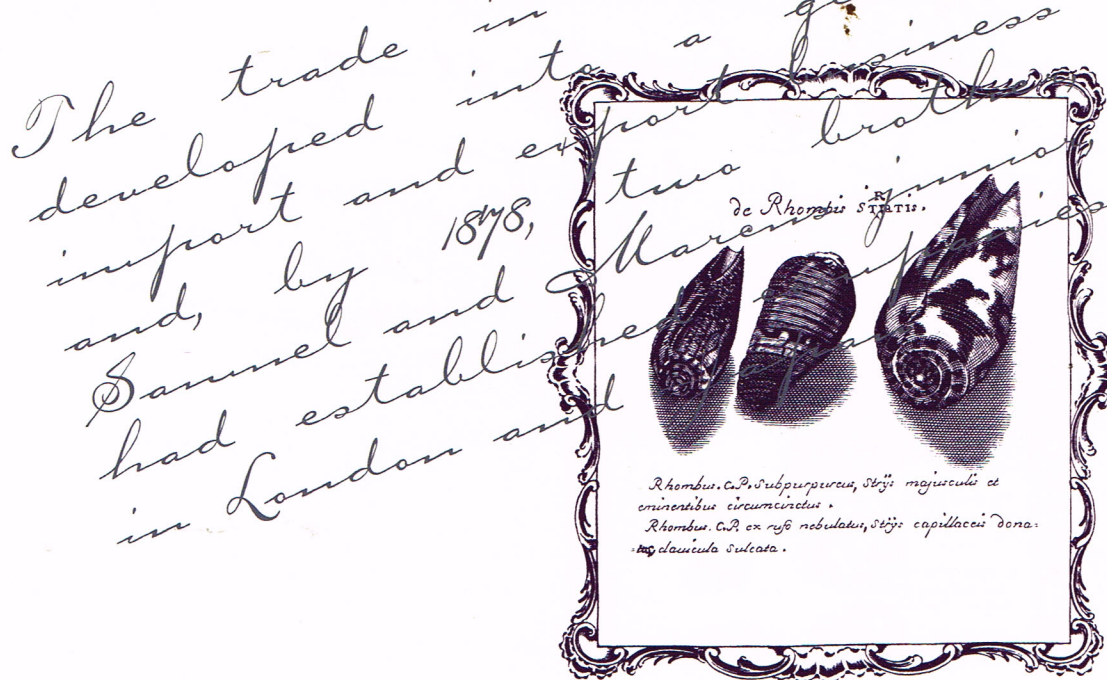 The trade in
developed into a
import and export business
and, by 1878, two brothe
Samuel and Marcus junior
had established companies
in London and Japan
de Rhombis STRIATIS.
Rhombus. C.P. Subpurpureus, Strÿs majusculis et
eminentibus circumcinctus.
Rhombus. C.P. ex rufo nebulatus, Strÿs capillaceis dona=
=tus, clavicula sulcata.